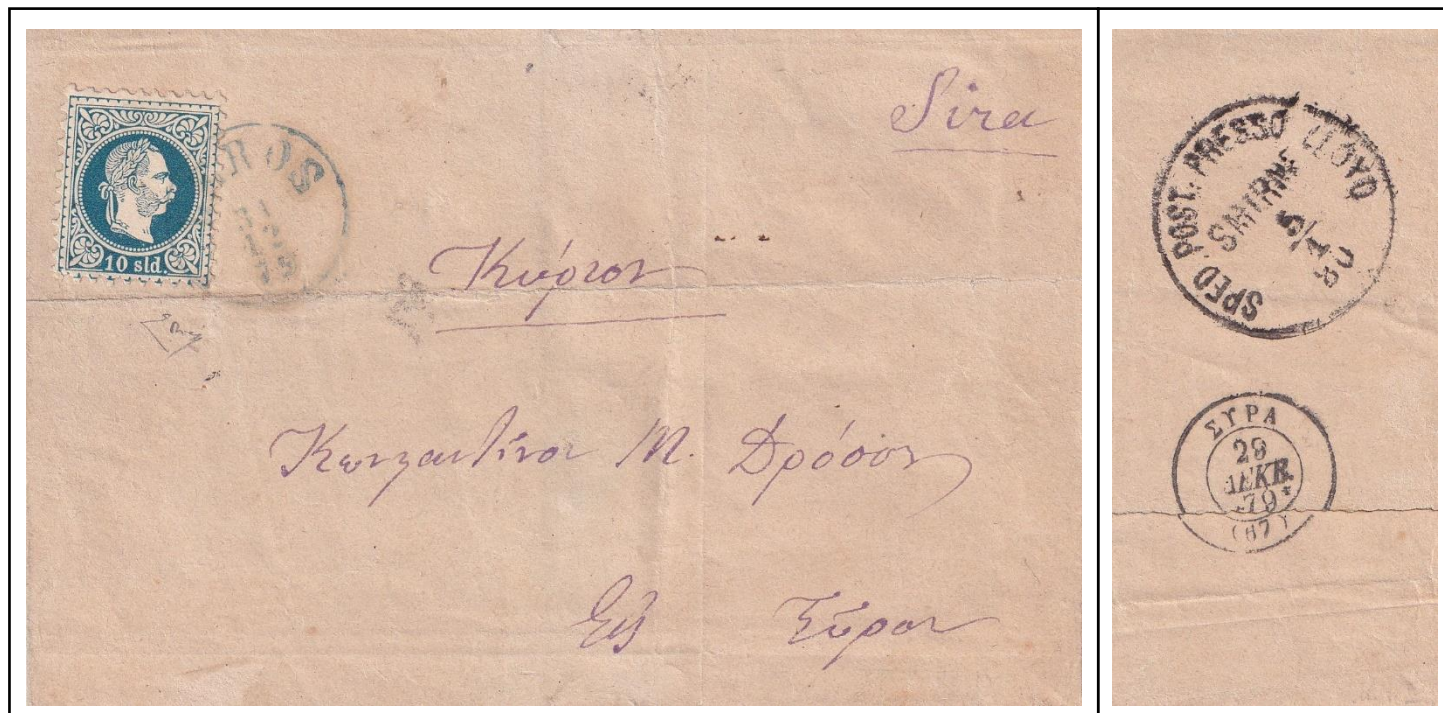 Sira
10 sld.
ROS
Κύριον
Κωνσταντίνον Μ. Δρόσον
Εἰς Σύρον
SPED. POST. PRESSO LLOYD
SMIRNE
5/1
80
ΣΥΡΑ
29
ΔΕΚΒ.
79
(67)